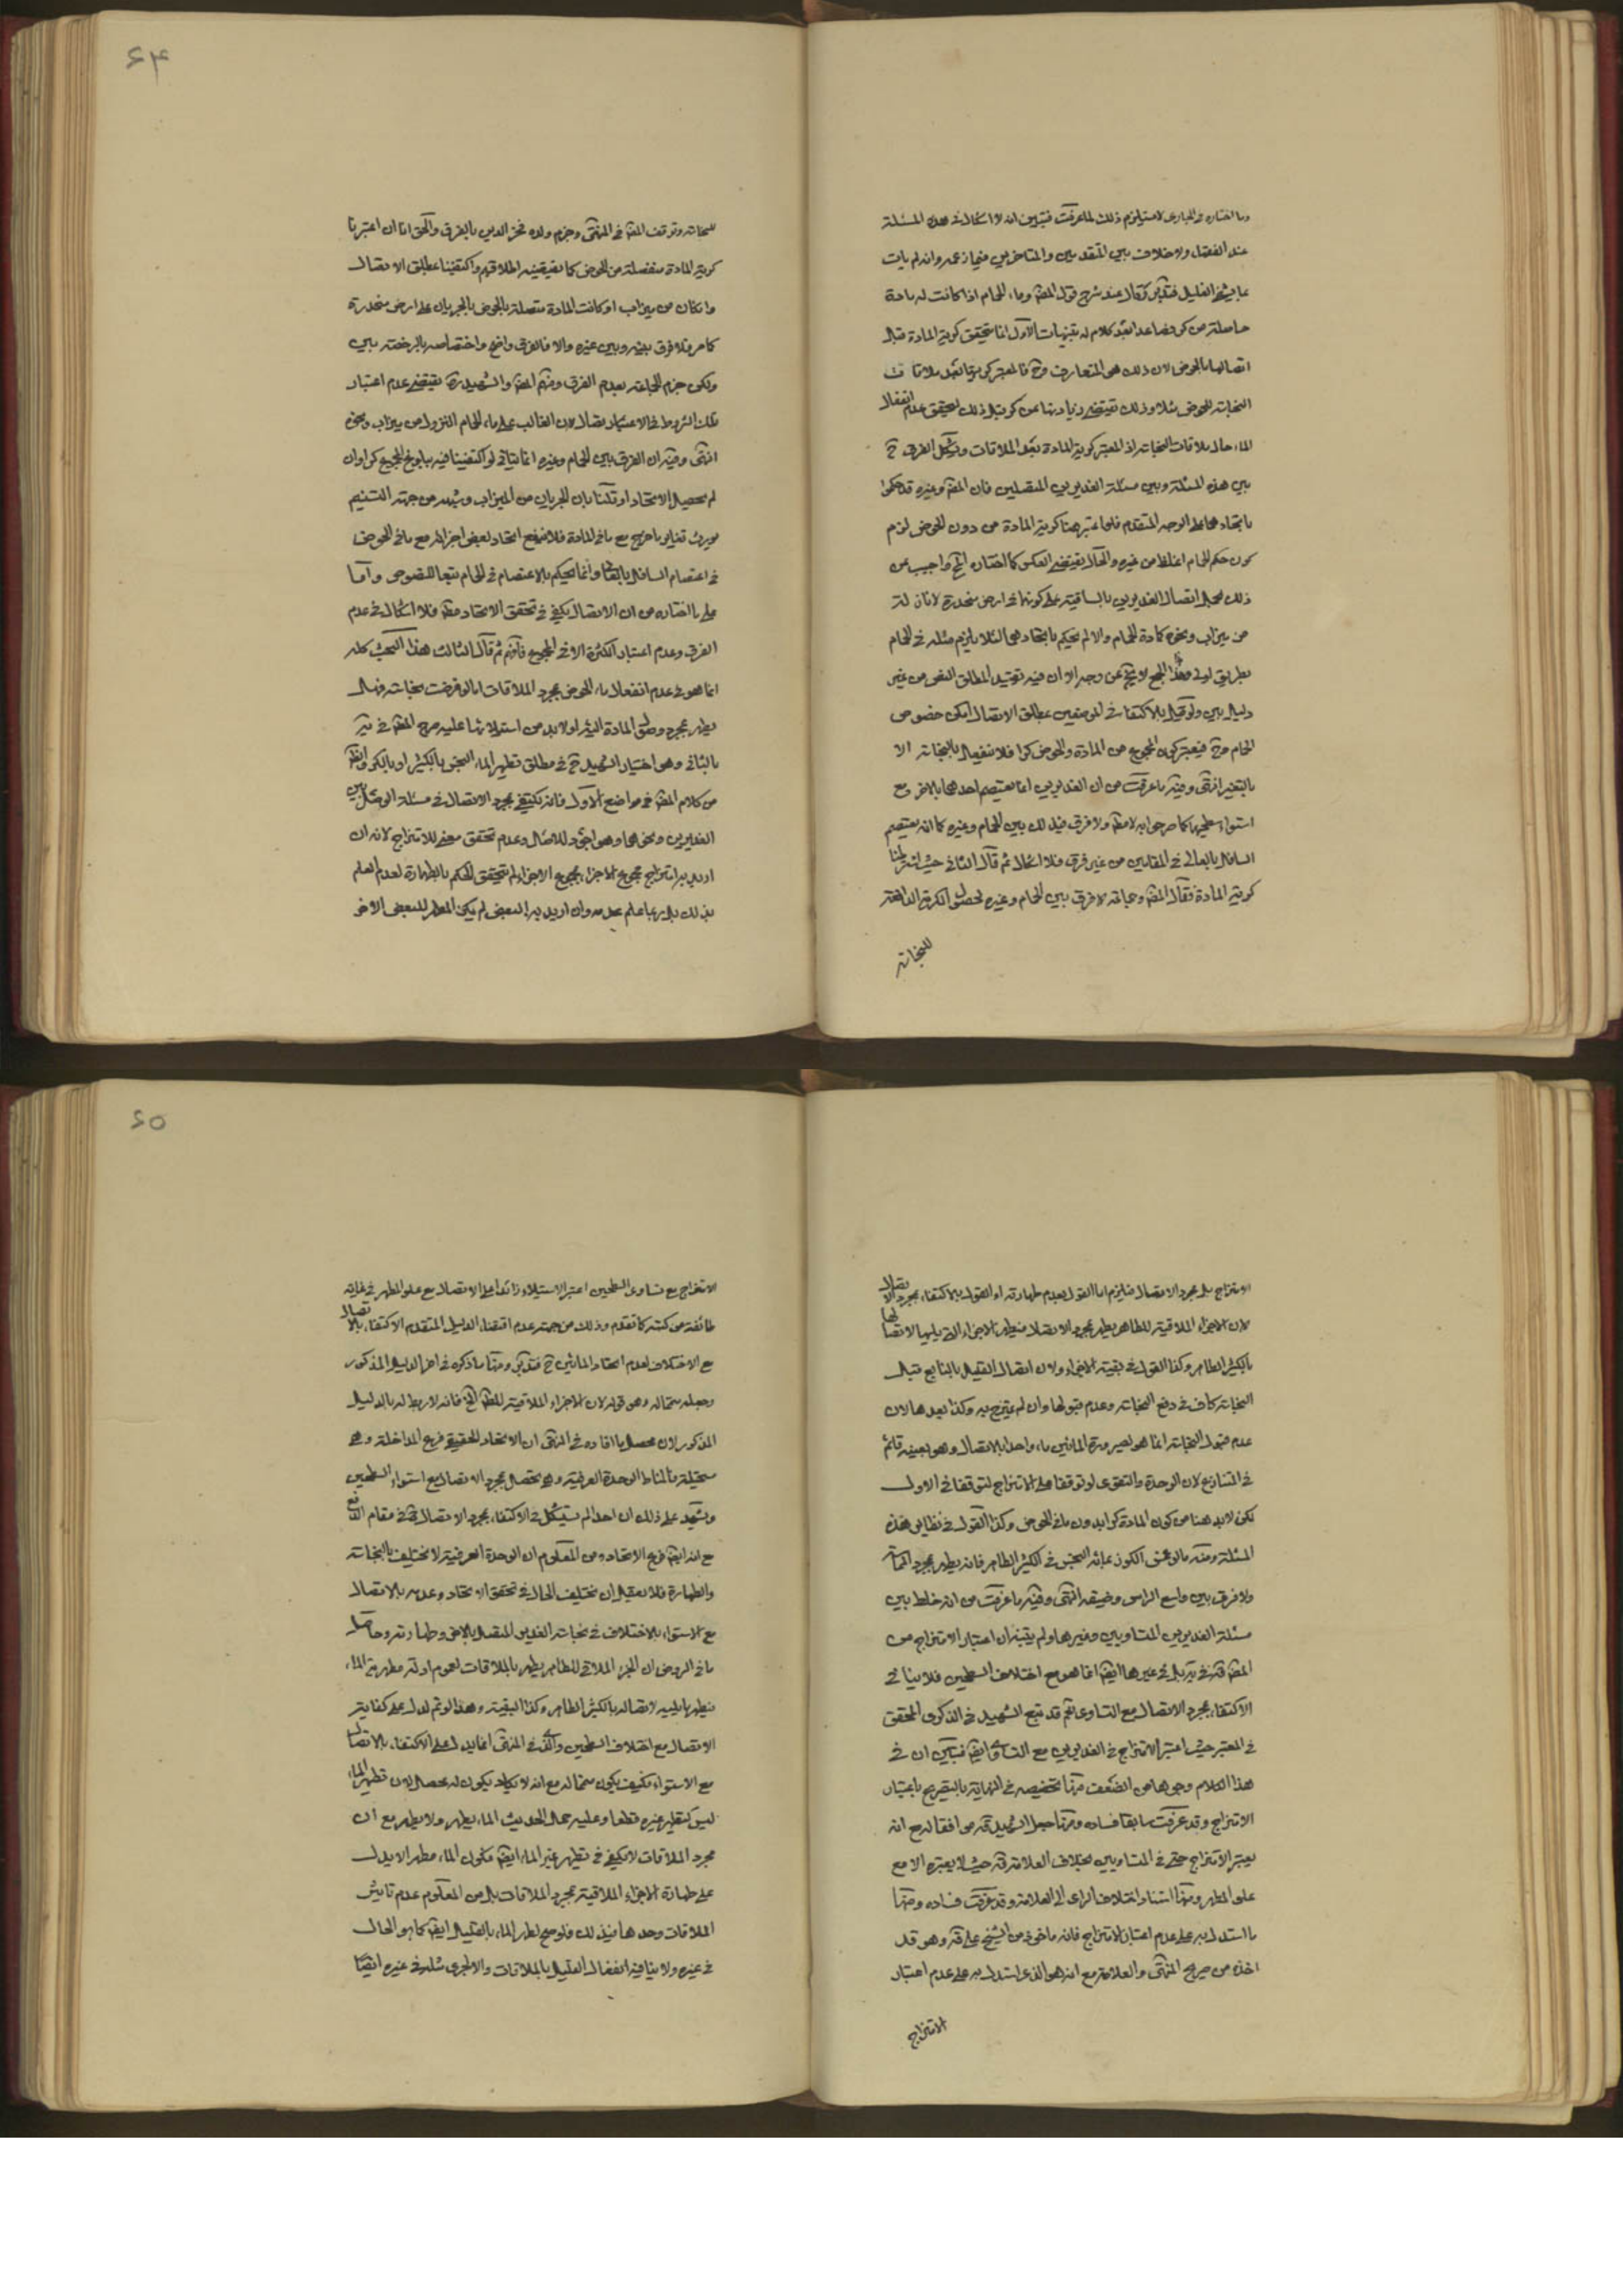 وما اختاره في المبارى لا يستلزم ذلك لما عرفت فتبين انه لا اشكال في هذه المسئلة
عند الفضلاء ولا خلاف بين المتقدمين والمتاخرين فيما زعمه وانه لم يات
بما يشفى الغليل فتدبر ثم قال عند شرح قول المصّ وماء الحمام اذا كانت له مادة
حاصلة من كر فصاعدا بعد كلام له تنبيهات الاول انما يتحقق كرية المادة قبل
اتصالها بالحوض لان ذلك هو المتعارف وح فالمعتبر كريتها بعد ملاقات
النجاسة للحوض مثلا وذلك يقتضي زيادتها عن كر قبل ذلك ليتحقق عدم انفعال
الماء حال ملاقات النجاسة اذ المعتبر كرية المادة بعد الملاقات ويشكل الفرق ح
بين هذه المسئلة وبين مسئلة الغديرين المتصلين فان المصّ وغيره قد حكموا
باتحادهما على الوجه المتقدم فلو اعتبر هنا كرية المادة من دون الحوض لزم
كون حكم الحمام اغلظ من غيره والحال يقتضي العكس كما اختاره المح واجيب عن
ذلك بحمل اتصال الغديرين بالساقية على كونها في ارض منحدرة لا نازلة
من ميزاب ونحوه كمادة الحمام والا لم يحكم باتحادهما لئلا يلزم مثله في الحمام
بطريق اولى وهذا الجمع لا يخ عن وجه الا ان فيه تقييد المطلق النص من غير
دليل بين ولو قيل بالاكتفا في الموضعين بمطلق الاتصال امكن خصوص
الحمام وح فيعتبر كون المجموع من المادة والحوض كرا فلا ينفعل بالنجاسة الا
بالتغير انتهى وفيه ما عرفت من ان الغديرين انما يعتصم احدهما بالاخر مع
استواء سطحيهما كما صرحوا به لا مطلقا ولا فرق في ذلك بين الحمام وغيره كما انه يعتصم
السافل بالعالى في المقامين من غير فرق فلا اشكال ثم قال الثاني حيث اشترطنا
كرية المادة فقال المصّ وجماعة لا فرق بين الحمام وغيره لحصول الكرية الدافعة
للنجاسة
۶۴
للنجاسة وتوقف المصّ في المنتهى وجزم ولده فخر الدين بالفرق والحق انا ان اعتبرنا
كرية المادة منفصلة من الحوض كما يقتضيه اطلاقهم واكتفينا بمطلق الاتصال
وان كان من ميزاب او كانت المادة متصلة بالحوض بالجريان على ارض منحدرة
كما مر فلا فرق بينه وبين غيره والا فالفرق واضح واختصاصه بالرخصة بين
ولكن جزم الجماعة بعدم الفرق ومنهم المصّ والشهيد ره يقتضي عدم اعتبار
تلك الشروط في الاعتبار بالاتصال لان الغالب على ماء الحمام النزول من ميزاب ونحوه
انتهى وفيه ان الفرق بين الحمام وغيره انما يتاتى لو اكتفينا فيه ببلوغ المجموع كرا وان
لم يحصل الاتحاد او قلنا بان الجريان من الميزاب وشبهه من جهة التسنيم
يورث تغاير ما خرج مع ما في المادة فلا ينفع اتحاد بعض اجزائه مع ما في الحوض
في اعتصام السافل بالعالى وانما يحكم بالاعتصام في الحمام تبعا للنصوص واما
على ما اختاره من ان الاتصال يكفي في تحقق الاتحاد مطلقا فلا اشكال في عدم
الفرق وعدم اعتبار الكثرة الا في المجموع فافهم ثم قال الثالث هذا البحث كله
انما هو في عدم انفعال ماء الحوض بمجرد الملاقات اما لو فرضت نجاسته فهل
يطهر بمجرد وصول المادة اليه ام لا بد من استيلائها عليه صرح المصّ في تير
بالثاني وهو اختيار الشهيد ح في مطلق تطهير الماء النجس بالكثير او بالكر والظ
من كلام المصّ في مواضع الاول فانه يكتفي بمجرد الاتصال في مسئلة الوصل بين
الغديرين ونحوهما وهو اجود للاصل وعدم تحقق معنى للامتزاج لانه ان
اريد به امتزاج مجموع الاجزاء بمجموع الاجزاء لم يتحقق الحكم بالطهارة لعدم العلم
بذلك بل ربما علم عدمه وان اريد به البعض لم يكن المطهر للبعض الاخر
الامتزاج بل مجرد الاتصال فيلزم اما القول بعدم طهارته او القول بالاكتفاء بمجرد الاتصال
لان الاجزاء الملاقية للطاهر يطهر بمجرد الاتصال فيطهر الاجزاء التي يليها لاتصالها
بالكثير الطاهر وكذا القول في بقية الاجزاء ولان اتصال القليل بالنابع قبل
النجاسة كاف في دفع النجاسة وعدم قبولها وان لم يمتزج به وكذا بعدها لان
عدم قبول النجاسة انما هو لصيرورة المائين ماء واحدا بالاتصال وهو بعينه قائم
في المتنازع لان الوحدة والتقوى لو توقفا على الامتزاج لتوقفا في الاول
لكن لا بد هنا من كون المادة كرا بدون ما في الحوض وكذا القول في نظاير هذه
المسئلة ومنه ما لو غمس الكوز بمائه النجس في الكثير الطاهر فانه يطهر بمجرد المماسة
ولا فرق بين واسع الراس وضيقه انتهى وفيه ما عرفت من انه خلط بين
مسئلة الغديرين المتساويين وغيرها ولم يتبينه ان اعتبار الامتزاج من
المصّ قه في تير بل في غيرها ايضا انما هو مع اختلاف السطحين فلا ينافى
الاكتفاء بمجرد الاتصال مع التساوى نعم قد تبع الشهيد في الذكرى المحقق
في المعتبر حيث اعتبر الامتزاج في الغديرين مع التساوى ايضا فتبين ان في
هذا الكلام وجوها من الضعف منها تخصيصه في النهاية بالتصريح باعتبار
الامتزاج وقد عرفت سابقا فساده ومنها جعل الشهيد قه موافقا له مع انه
يعتبر الامتزاج حتى في المتساويين بخلاف العلامة قه حيث لا يعتبره الا مع
علو المطهر ومنها اسناد اختلاف الراى الى العلامة وقد عرفت فساده ومنها
ما استدل به على عدم اعتبار الامتزاج فانه ماخوذ من الشيخ على قه وهو قد
اخذه من صريح المنتهى والعلامة مع انه هو الذي استدل به على عدم اعتبار
الامتزاج
۶۵
الامتزاج مع تساوى السطحين اعتبر الاستيلاء زائدا على الاتصال مع علو المطهر في غاية
طائفة من كتبه كما تقدم وذلك من جهة عدم اقتضاء الدليل المتقدم الاكتفاء بالاتصال
مع الاختلاف لعدم اتحاد المائين ح فتدبر ومنها ما ذكره في اخر الدليل المذكور
وجعله متمما له وهو قوله لان الاجزاء الملاقية للطاهر الخ فانه لا ربط له بالدليل
المذكور لان محصل ما افاده في المنتهى ان الاتحاد الحقيقي فرع المداخلة وهي
مستحيلة فالمناط الوحدة العرفية وهي تحصل بمجرد الاتصال مع استواء السطحين
ويشهد على ذلك ان احدا لم يستشكل في الاكتفاء بمجرد الاتصال في مقام الدفع
مع انه ايضا فرع الاتحاد ومن المعلوم ان الوحدة العرفية لا تختلف بالنجاسة
والطهارة فلا يعقل ان يختلف الحال في تحقق الاتحاد وعدمه بالاتصال
مع الاستواء بالاختلاف في نجاسة الغدير المتصل بالاخر وطهارته وحاصل
ما في الروض ان الجزء الملاقى للطاهر يطهر بالملاقات لعموم ادلة مطهرية الماء
فيطهر ما يليه لاتصاله بالكثير الطاهر وكذا البقية وهذا لو تم لدل على كفاية
الاتصال مع اختلاف السطحين والذي في المنتهى انما يدل على الاكتفاء بالاتصال
مع الاستواء فكيف يكون متمما له مع انه لا يكاد يكون له محصل لان تطهير الماء
ليس كتطهير غيره قطعا وعليه حمل الحديث الماء يطهر ولا يطهر مع ان
مجرد الملاقات لا يكفي في تطهير غير الماء ايضا فكون الماء مطهرا لا يدل
على طهارة الاجزاء الملاقية بمجرد الملاقات بل من المعلوم عدم تاثير
الملاقات وحدها في ذلك فلو صح لطهر الماء بالقليل ايضا كما هو الحال
في غيره ولا ينافيه انفعال القليل بالملاقات والا لجرى مثله في غيره ايضا